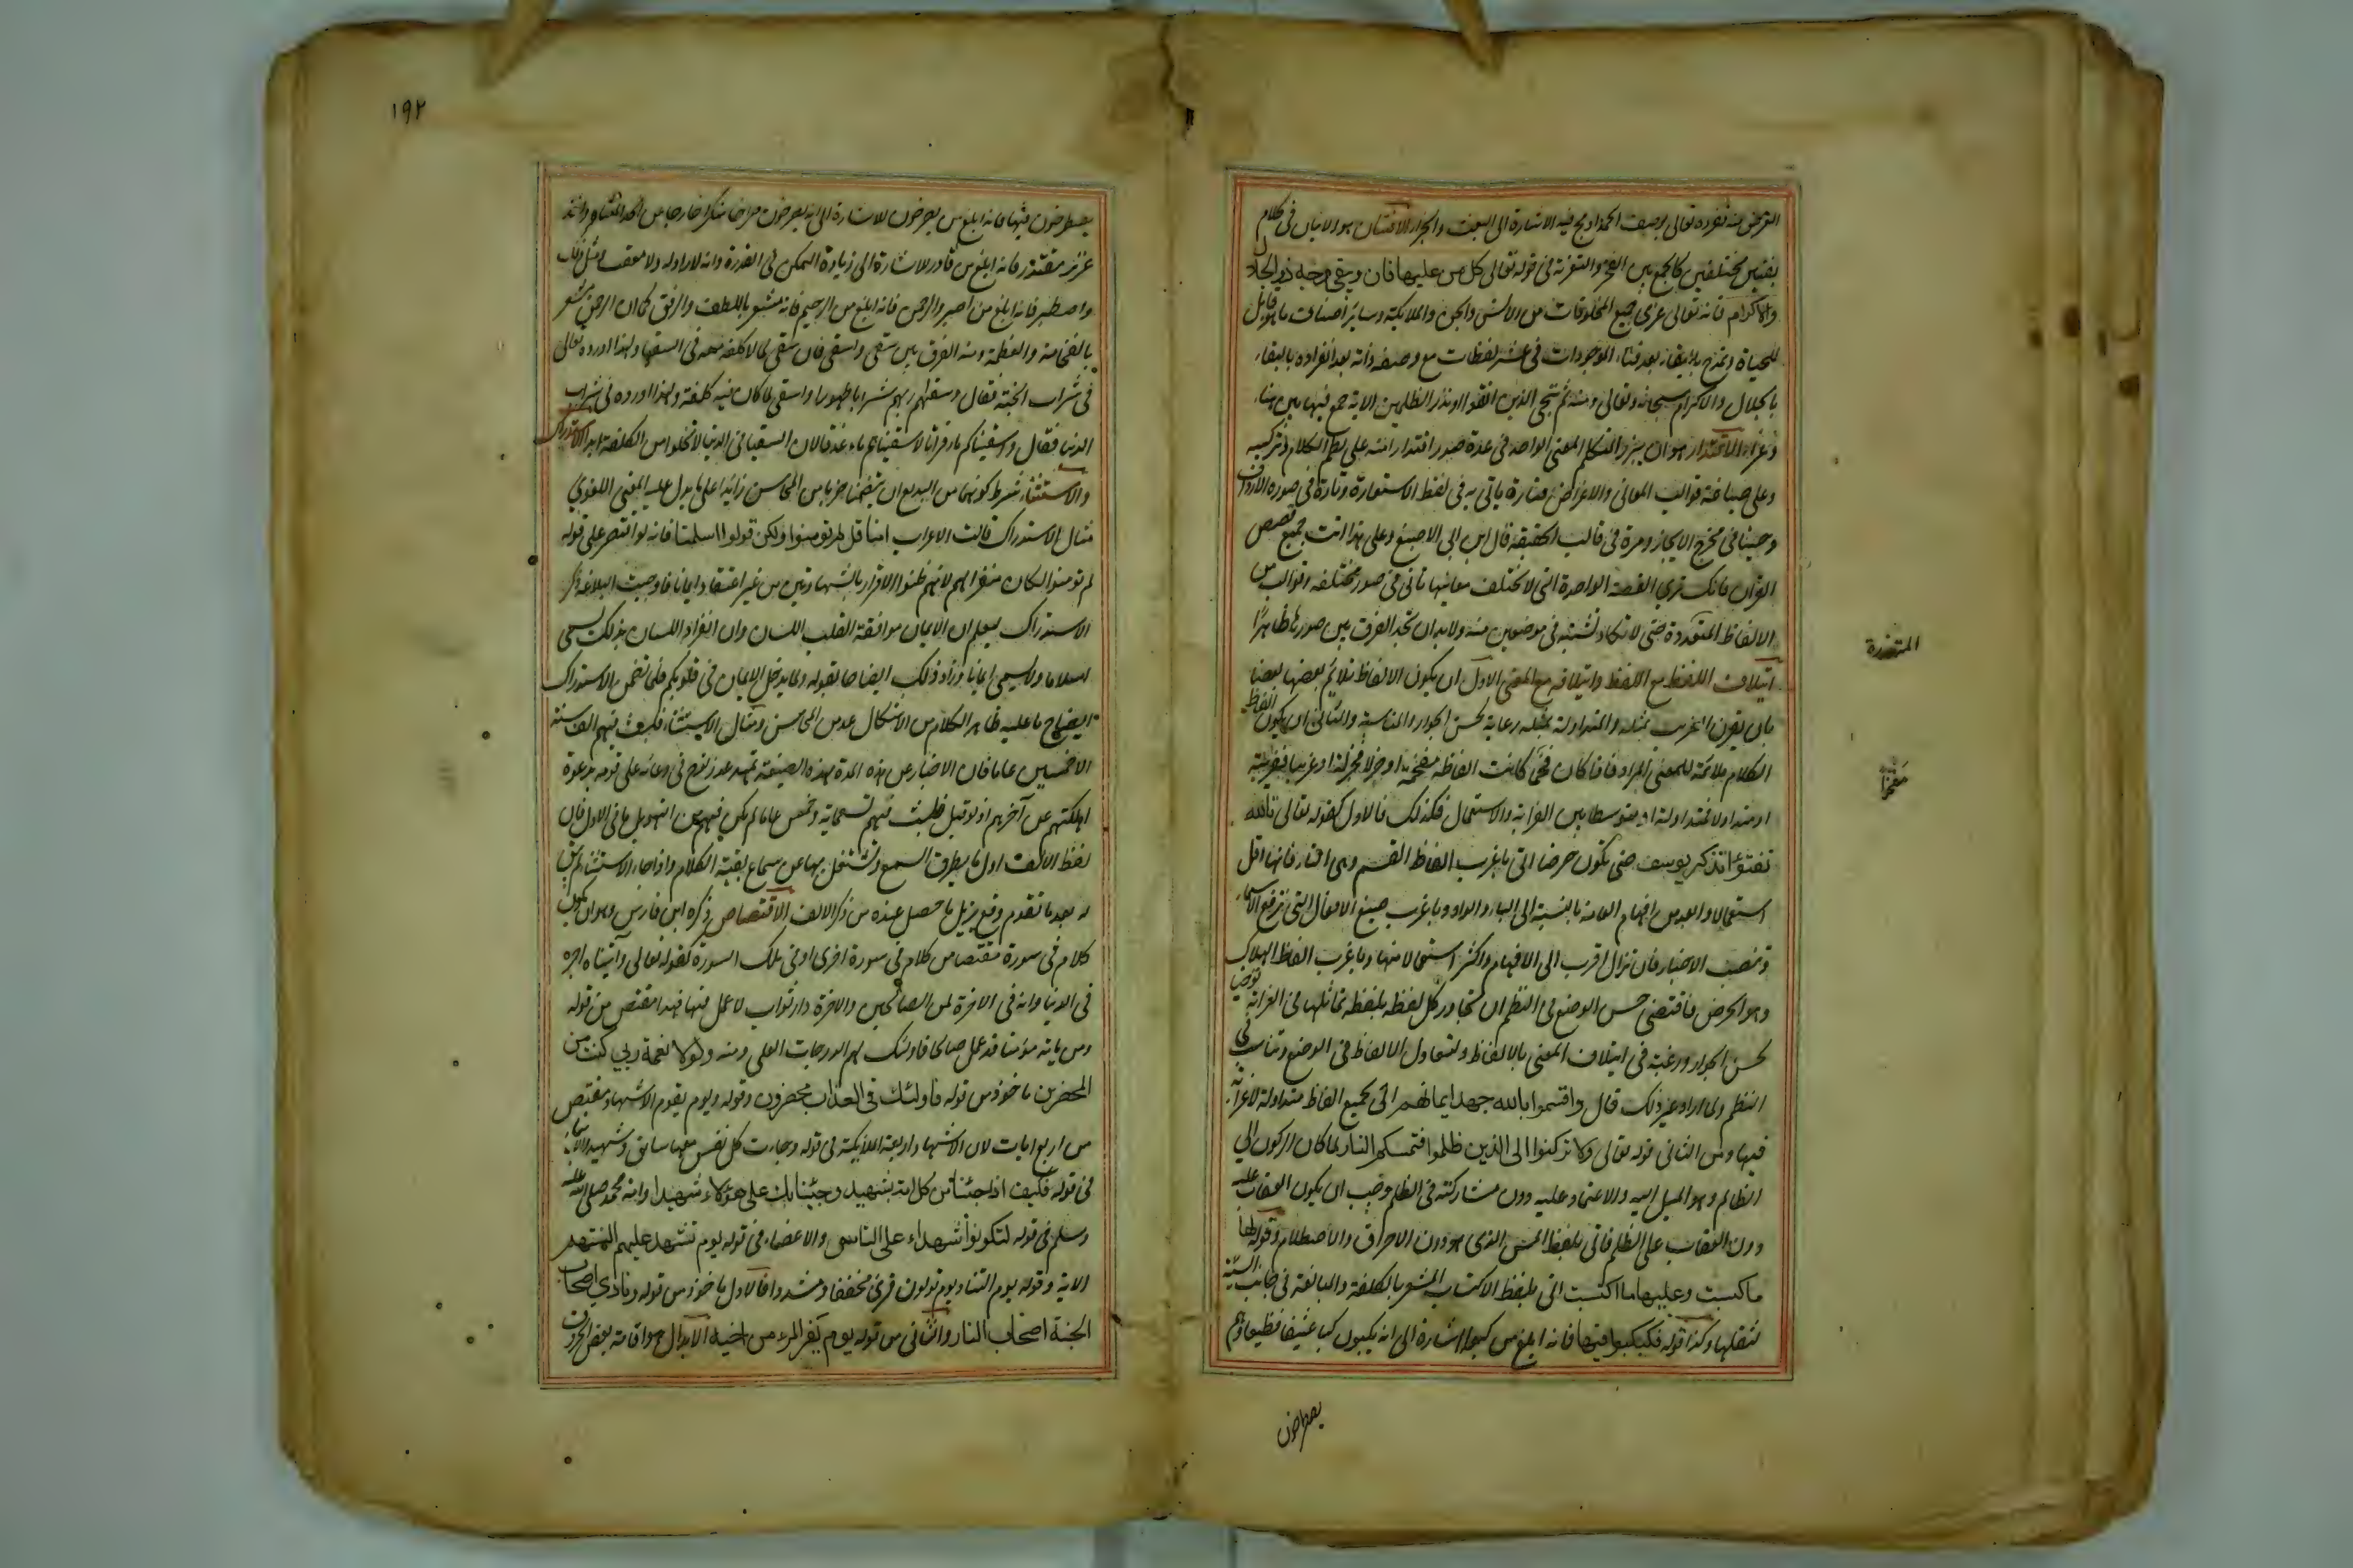 الغرض منه تفرده تعالى بوصف الحمد ادمج فيه الاشارة الى البعث والجزاء الافتنان هو الاتيان في كلام
بفنين مختلفين كالجمع بين الفخر والتعزية في قوله تعالى كل من عليها فان ويبقى وجه ربك ذو الجلال
والاكرام فانه تعالى عزى جميع المخلوقات من الانس والجن والملائكة وسائر اصناف ما هو قابل
للحياة وتمدح بالبقاء بعد فناء الموجودات في عشر لفظات مع وصفه ذاته بعد انفراده بالبقاء
بالجلال والاكرام سبحانه وتعالى ومنه ثم ننجي الذين اتقوا ونذر الظلمين الاية جمع فيها بين هناء
وعزاء الاقتدار هو ان يبرز المتكلم المعنى الواحد في عدة صور اقتدارا منه على نظم الكلام وتركيبه
وعلى صياغة قوالب المعاني والاغراض فتارة ياتي به في لفظ الاستعارة وتارة في صورة الارداف
وحينا في مخرج الايجاز ومرة في قالب الحقيقة قال ابن ابي الاصبع وعلى هذا اتت جميع قصص
القران فانك ترى القصة الواحدة التي لا تختلف معانيها تاتي في صور مختلفة وقوالب من
الالفاظ المتعددة حتى لا تكاد تشتبه في موضعين منه ولا بد ان تجد الفرق بين صورها ظاهرا
ايتلاف اللفظ مع اللفظ وايتلافه مع المعنى الاول ان يكون الالفاظ تلائم بعضها بعضا
بان يقرن الغريب بمثله والمتداولة بمثله رعاية لحسن الجوار والمناسبة والثاني ان يكون الفاظ
الكلام ملائمة للمعنى المراد فاذا كان فخما كانت الفاظه مفخمة او جزلا فجزلة او غريبا فغريبة
او متداولا فمتداولة او متوسطا بين الغرابة والاستعمال فكذلك فالاول كقوله تعالى تالله
تفتؤا تذكر يوسف حتى تكون حرضا اتى باغرب الفاظ القسم وهي التاء فانها اقل
استعمالا وابعد من افهام العامة بالنسبة الى الباء والواو وباغرب صيغ الافعال التي ترفع الاسماء
وتنصب الاخبار فان تزال اقرب الى الافهام واكثر استعمالا منها وباغرب الفاظ الهلاك
وهو الحرض فاقتضى حسن الوضع في النظم ان تجاور كل لفظة بلفظة تماثلها في الغرابة توخيا
لحسن الجوار ورغبة في ايتلاف المعنى بالالفاظ ولتعادل الالفاظ في الوضع وتناسب في
النظم ولما اراد غير ذلك قال واقسموا بالله جهد ايمانهم اتى بجميع الفاظ متداولة لا غرابة
فيها ومن الثاني قوله تعالى ولا تركنوا الى الذين ظلموا فتمسكم النار لما كان الركون الى
الظالم وهو الميل اليه والاعتماد عليه دون مشاركته في الظلم وجب ان يكون العقاب عليه
دون العقاب على الظلم فاتى بلفظ المس الذي هو دون الاحراق والاصطلام وقوله لها
ما كسبت وعليها ما اكتسبت اتى بلفظ الاكتساب المشعر بالكلفة والمبالغة في جانب السيئة
لثقلها وكذا قوله فكبكبوا فيها فانه ابلغ من كبوا اشارة الى انه يكبون كبا عنيفا فظيعا وهم
المتعددة
مفخما
يصطرخون
١٩٢
يصطرخون فيها فانه ابلغ من يصرخون للاشارة الى انه يصرخون صراخا منكرا خارجا من الحد المعتاد واخذ
عزيز مقتدر فانه ابلغ من قادر للاشارة الى زيادة التمكن في القدرة وانه لا راد له ولا معقب ومثل ذلك
واصطبر فانه ابلغ من اصبر والرحمن فانه ابلغ من الرحيم فانه مشعر باللطف والرفق كما ان الرحمن مشعر
بالفخامة والعظمة ومنه الفرق بين سقى واسقى فان سقى لما لا كلفة معه في السقيا ولهذا اورده تعالى
في شراب الجنة فقال وسقيهم ربهم شرابا طهورا واسقى لما كان فيه كلفة ولهذا اورده في شراب
الدنيا فقال واسقيناكم ماء فراتا لاسقيناهم ماء غدقا لان السقيا في الدنيا لا تخلوا من الكلفة ابدا الاستدراك
والاستثناء شرط كونهما من البديع ان يتضمنا ضربا من المحاسن زائدا على ما يدل عليه المعنى اللغوي
مثال الاستدراك قالت الاعراب امنا قل لم تومنوا ولكن قولوا اسلمنا فانه لو اقتصر على قوله
لم تومنوا لكان منفرا لهم لانهم ظنوا الاقرار بالشهادتين من غير اعتقاد ايمانا فاوجبت البلاغة ذكر
الاستدراك ليعلم ان الايمان موافقة القلب اللسان وان انفراد اللسان بذلك يسمى
اسلاما ولا يسمى ايمانا وزاد ذلك ايضاحا بقوله ولما يدخل الايمان في قلوبكم فلما تضمن الاستدراك
ايضاح ما عليه ظاهر الكلام من الاشكال عد من المحاسن ومثال الاستثناء فلبث فيهم الف سنة
الا خمسين عاما فان الاخبار عن هذه المدة بهذه الصيغة تمهيد عذر نوح في دعائه على قومه بدعوة
اهلكتهم عن آخرهم اذ لو قيل فلبث فيهم تسعماية وخمسين عاما لم يكن فيه من التهويل ما في الاول فان
لفظ الالف اول ما يطرق السمع وتشتغل بها عن سماع بقية الكلام واذا جاء الاستثناء لم يبق
له بعد ما تقدم وقع يزيل ما حصل عنده من ذكر الالف الاقتصاص ذكره ابن فارس وهو ان يكون
كلام في سورة مقتصا من كلام في سورة اخرى او في تلك السورة كقوله تعالى وآتيناه اجره
في الدنيا وانه في الاخرة لمن الصالحين والاخرة دار ثواب لا عمل فيها فهذا مقتص من قوله
ومن ياته مؤمنا قد عمل صالحا فاولئك لهم الدرجات العلى ومنه ولولا نعمة ربي لكنت من
المحضرين ماخوذ من قوله فاولئك في العذاب محضرون وقوله ويوم يقوم الاشهاد مقتص
من اربع ايات لان الاشهاد اربعة الملائكة في قوله وجاءت كل نفس معها سائق وشهيد والانبياء
في قوله فكيف اذا جئنا من كل امة بشهيد وجئنا بك على هؤلاء شهيدا وامة محمد صلى الله عليه
وسلم في قوله لتكونوا شهداء على الناس والاعضاء في قوله يوم تشهد عليهم السنتهم
الاية وقوله يوم التناد يوم تولون قرئ مخففا ومشددا فالاول ماخوذ من قوله ونادى اصحاب
الجنة اصحاب النار والثاني من قوله يوم يفر المرء من اخيه الابدال هو اقامة بعض الحروف